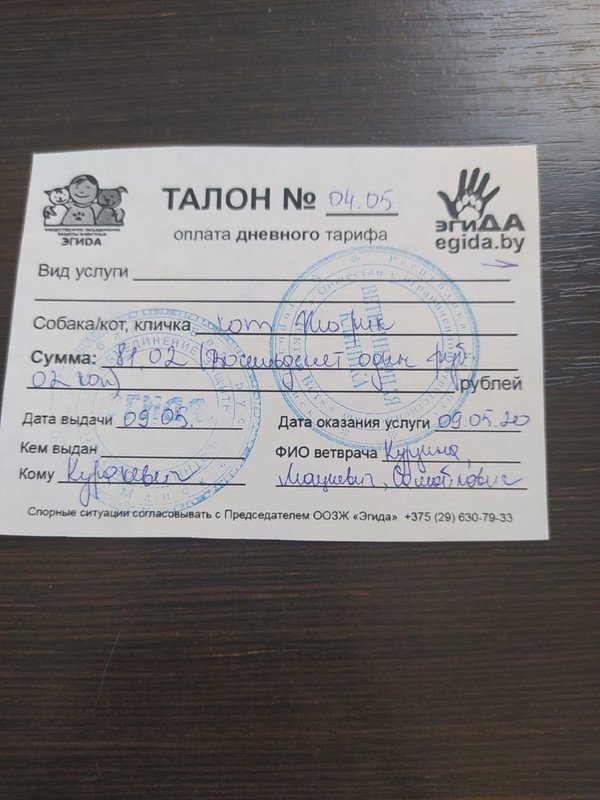 ОБЩЕСТВЕННОЕ ОБЪЕДИНЕНИЕ
ЗАЩИТЫ ЖИВОТНЫХ
ЭГИДА
ТАЛОН № 04.05
оплата дневного тарифа
эгиДА
egida.by
Вид услуги
Собака/кот, кличка кот Тюрик
Сумма: 81,02 (Восемьдесят один руб
02 коп) рублей
Дата выдачи 09.05.
Дата оказания услуги 09.05.20
Кем выдан
ФИО ветврача Курдина,
Кому Куракевич
Мацкевич, Самойлович
Спорные ситуации согласовывать с Председателем ООЗЖ «Эгида» +375 (29) 630-79-33